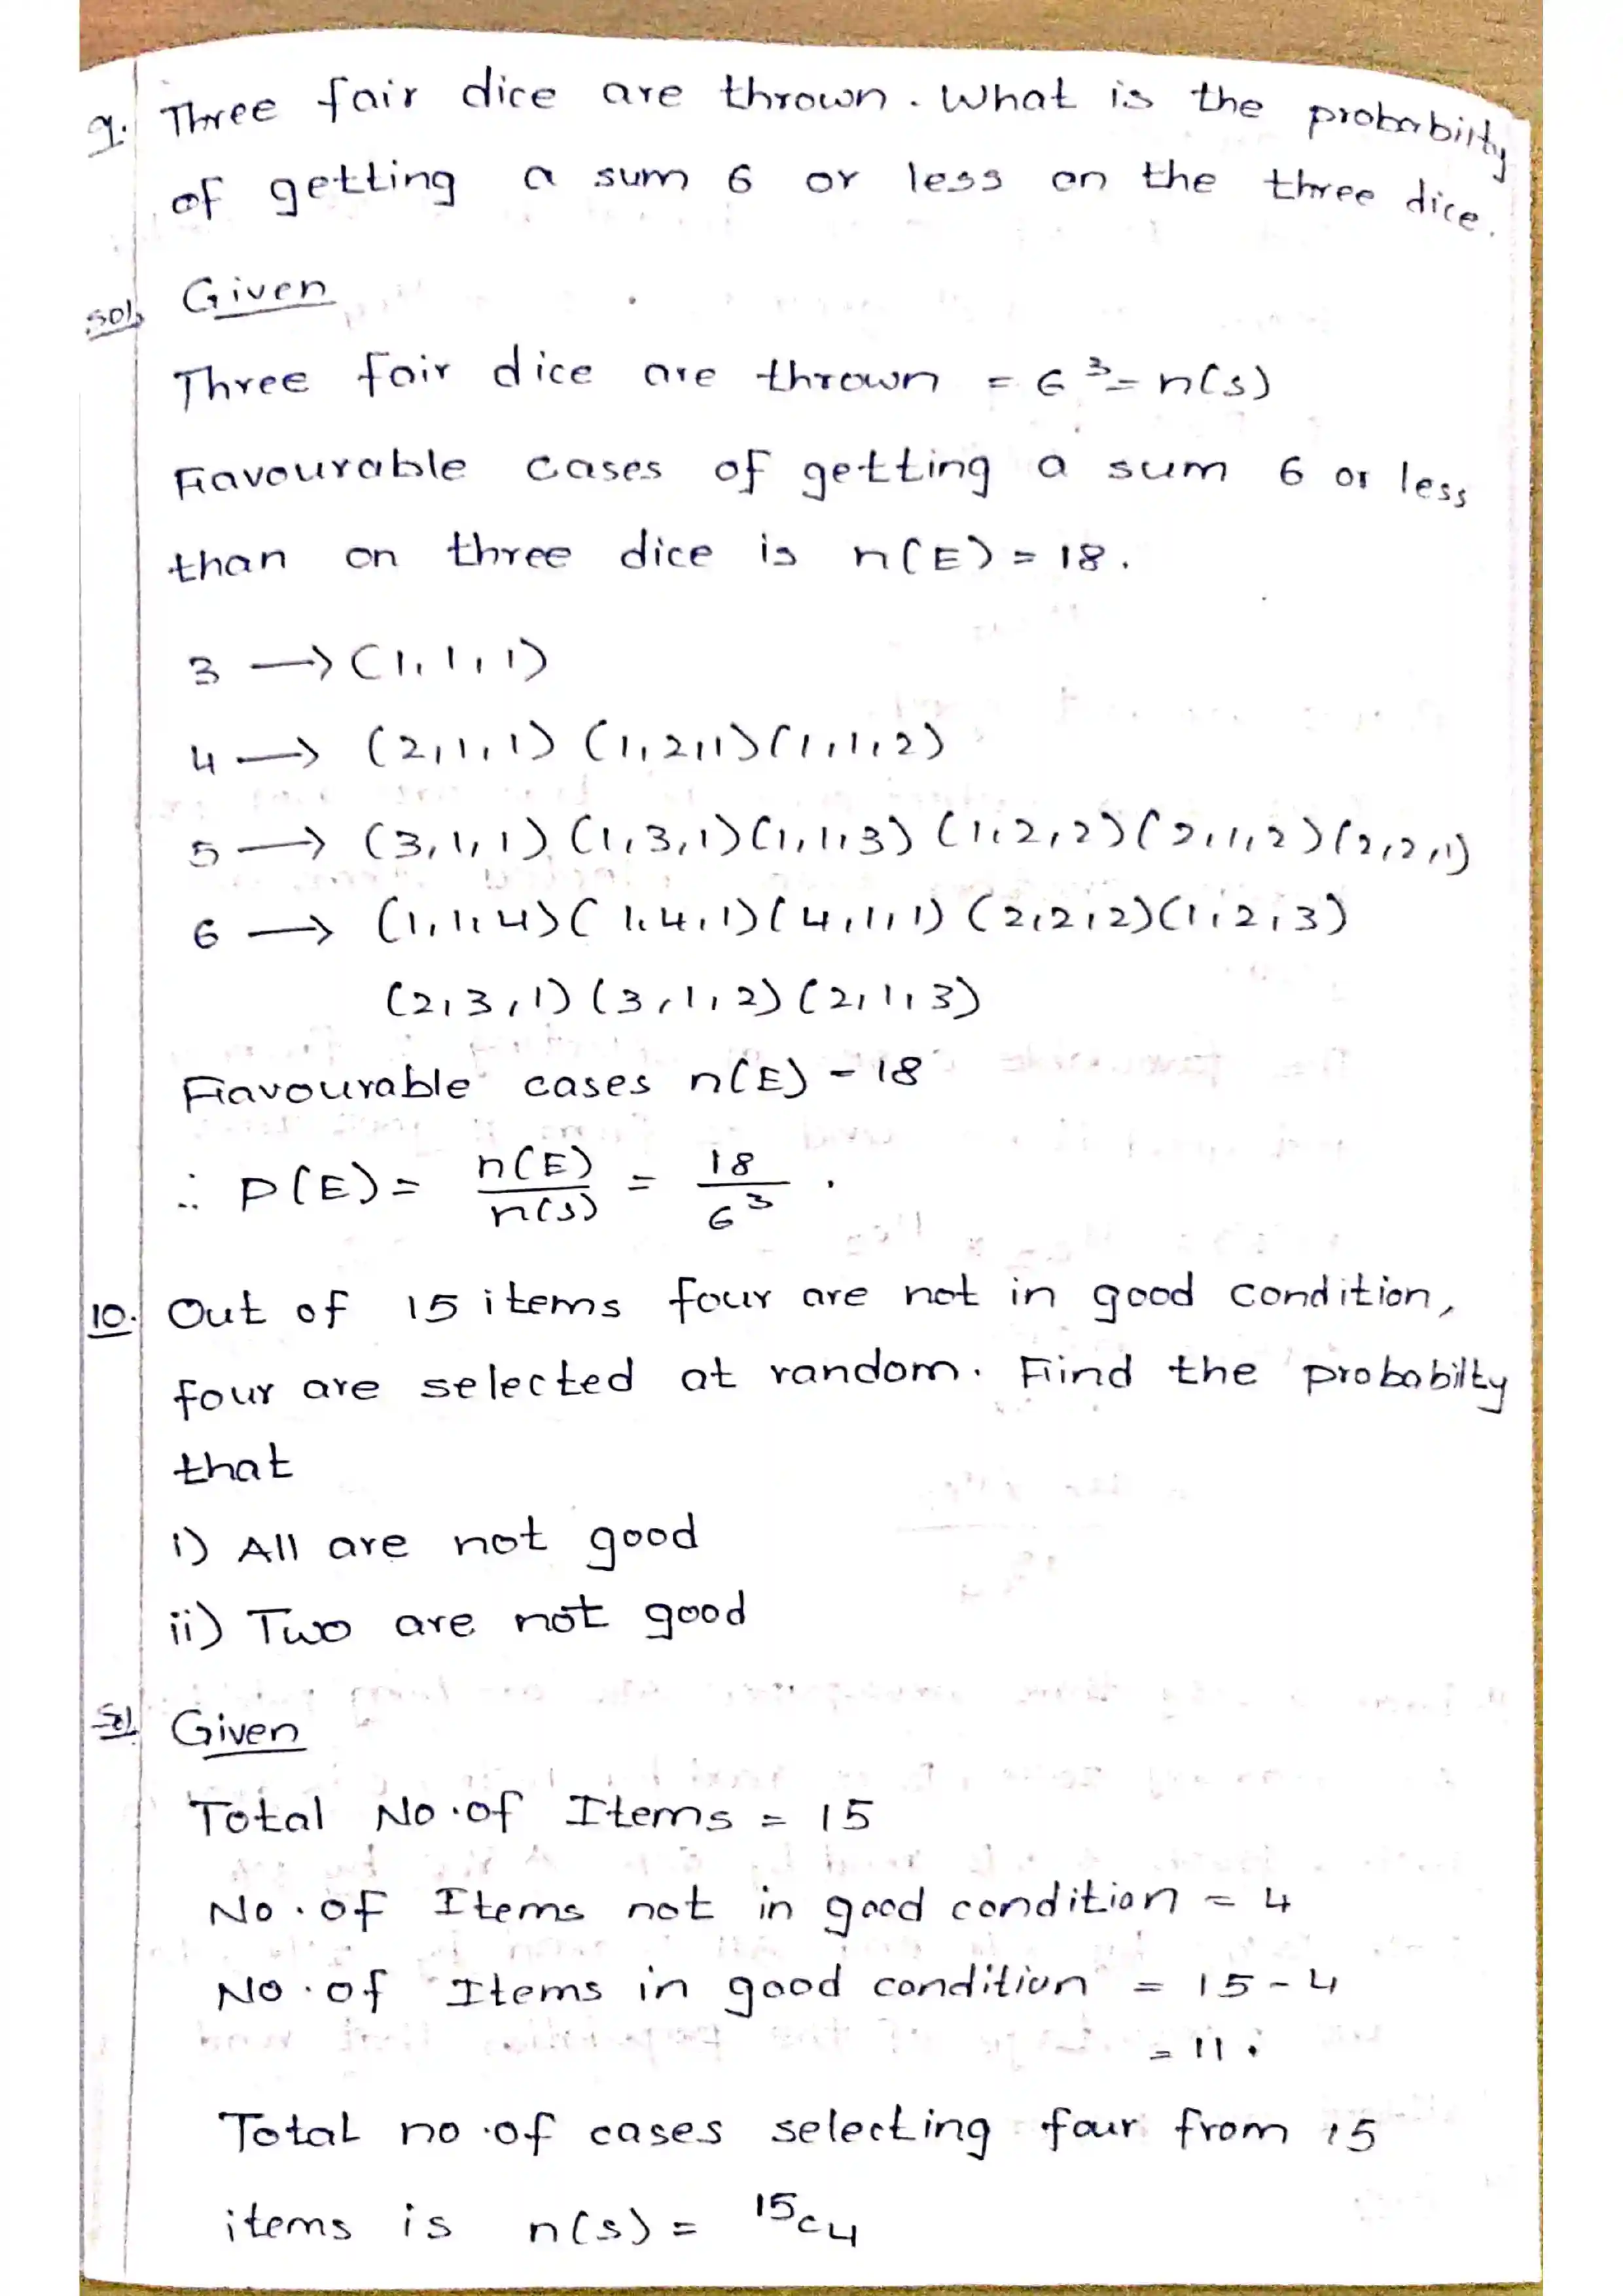 9. Three fair dice are thrown. What is the probabilty
of getting a sum 6 or less on the three dice.
sol, Given
Three fair dice are thrown = 6³ = n(s)
Favourable cases of getting a sum 6 or less
than on three dice is n(E) = 18.
3 → (1,1,1)
4 → (2,1,1) (1,2,1) (1,1,2)
5 → (3,1,1) (1,3,1) (1,1,3) (1,2,2) (2,1,2) (2,2,1)
6 → (1,1,4) (1,4,1) (4,1,1) (2,2,2) (1,2,3)
(2,3,1) (3,1,2) (2,1,3)
Favourable cases n(E) = 18
∴ P(E) = n(E)/n(s) = 18/6³ .
10. Out of 15 items four are not in good condition,
four are selected at random. Find the probabilty
that
i) All are not good
ii) Two are not good
Sol Given
Total No.of Items = 15
No.of Items not in good condition = 4
No.of Items in good condition = 15-4
= 11.
Total no.of cases selecting four from 15
items is n(s) = ¹⁵C₄